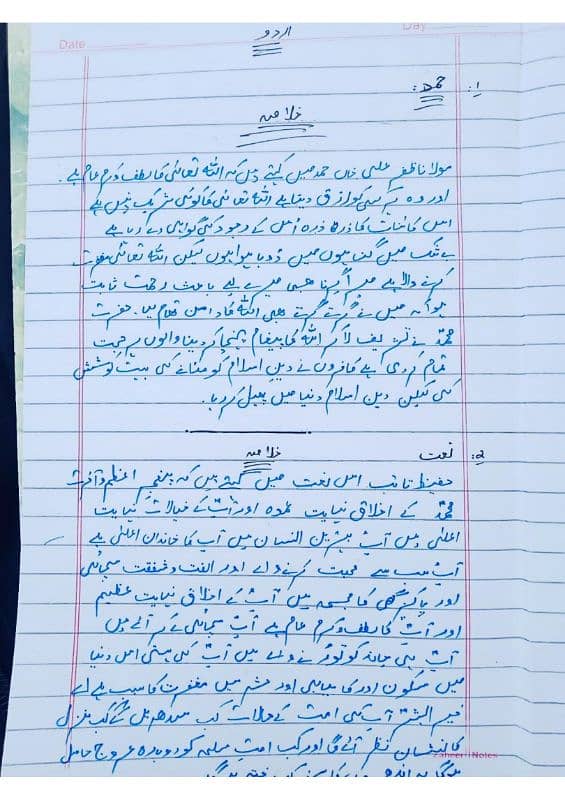 Date
Day
اردو
۱: حمد:
خلاصہ
مولانا ظفر علی خاں حمد میں کہتے ہیں کہ اللہ تعالٰی کا لطف و کرم عام ہے۔
اور وہ ہر کسی کو رزق دیتا ہے اللہ تعالٰی کا کوئی شریک نہیں ہے
اس کائنات کا ذرہ ذرہ اس کے وجود کی گواہی دے رہا ہے
بے شک میں گناہوں میں ڈوبا ہوا ہوں لیکن اللہ تعالٰی مغفرت
کرنے والا ہے میرا گرنا بھی میرے لیے باعث رحمت ثابت
ہوا کہ میں نے گرتے گرتے بھی اللہ کا دامن تھام لیا۔ حضرت
محمدؐ نے تشریف لا کر اللہ کا پیغام پہنچا کر دنیا والوں پر حجت
تمام کر دی ہے کافروں نے دین اسلام کو مٹانے کی بہت کوشش
کی لیکن دین اسلام دنیا میں پھیل کر رہا۔
۲: نعت
خلاصہ
حفیظ تائب اس نعت میں کہتے ہیں کہ پیغمبر اعظم و آخرت
محمدؐ کے اخلاق نہایت عمدہ اور آپؐ کے خیالات نہایت
اعلٰی ہیں آپؐ بہترین انسان ہیں آپ کا خاندان اعلٰی ہے
آپؐ سب سے محبت کرنے والے اور الفت و شفقت سچائی
اور پاکیزگی کا مجسمہ ہیں آپؐ کے اخلاق نہایت عظیم
اور آپؐ کا لطف و کرم عام ہے آپؐ سچائی کے آلے ہیں
آپؐ ہی چاند کو توڑنے والے ہیں آپؐ کی ہستی اس دنیا
میں سکون اور کامیابی اور حشر میں مغفرت کا سبب ہے اے
خیر البشرؐ آپؐ کی امت کے حالات کب سدھریں گے کب منزل
کا نشان نظر آئے گا اور کب امت مسلمہ کو دوبارہ عروج حاصل
Zaheer Notes